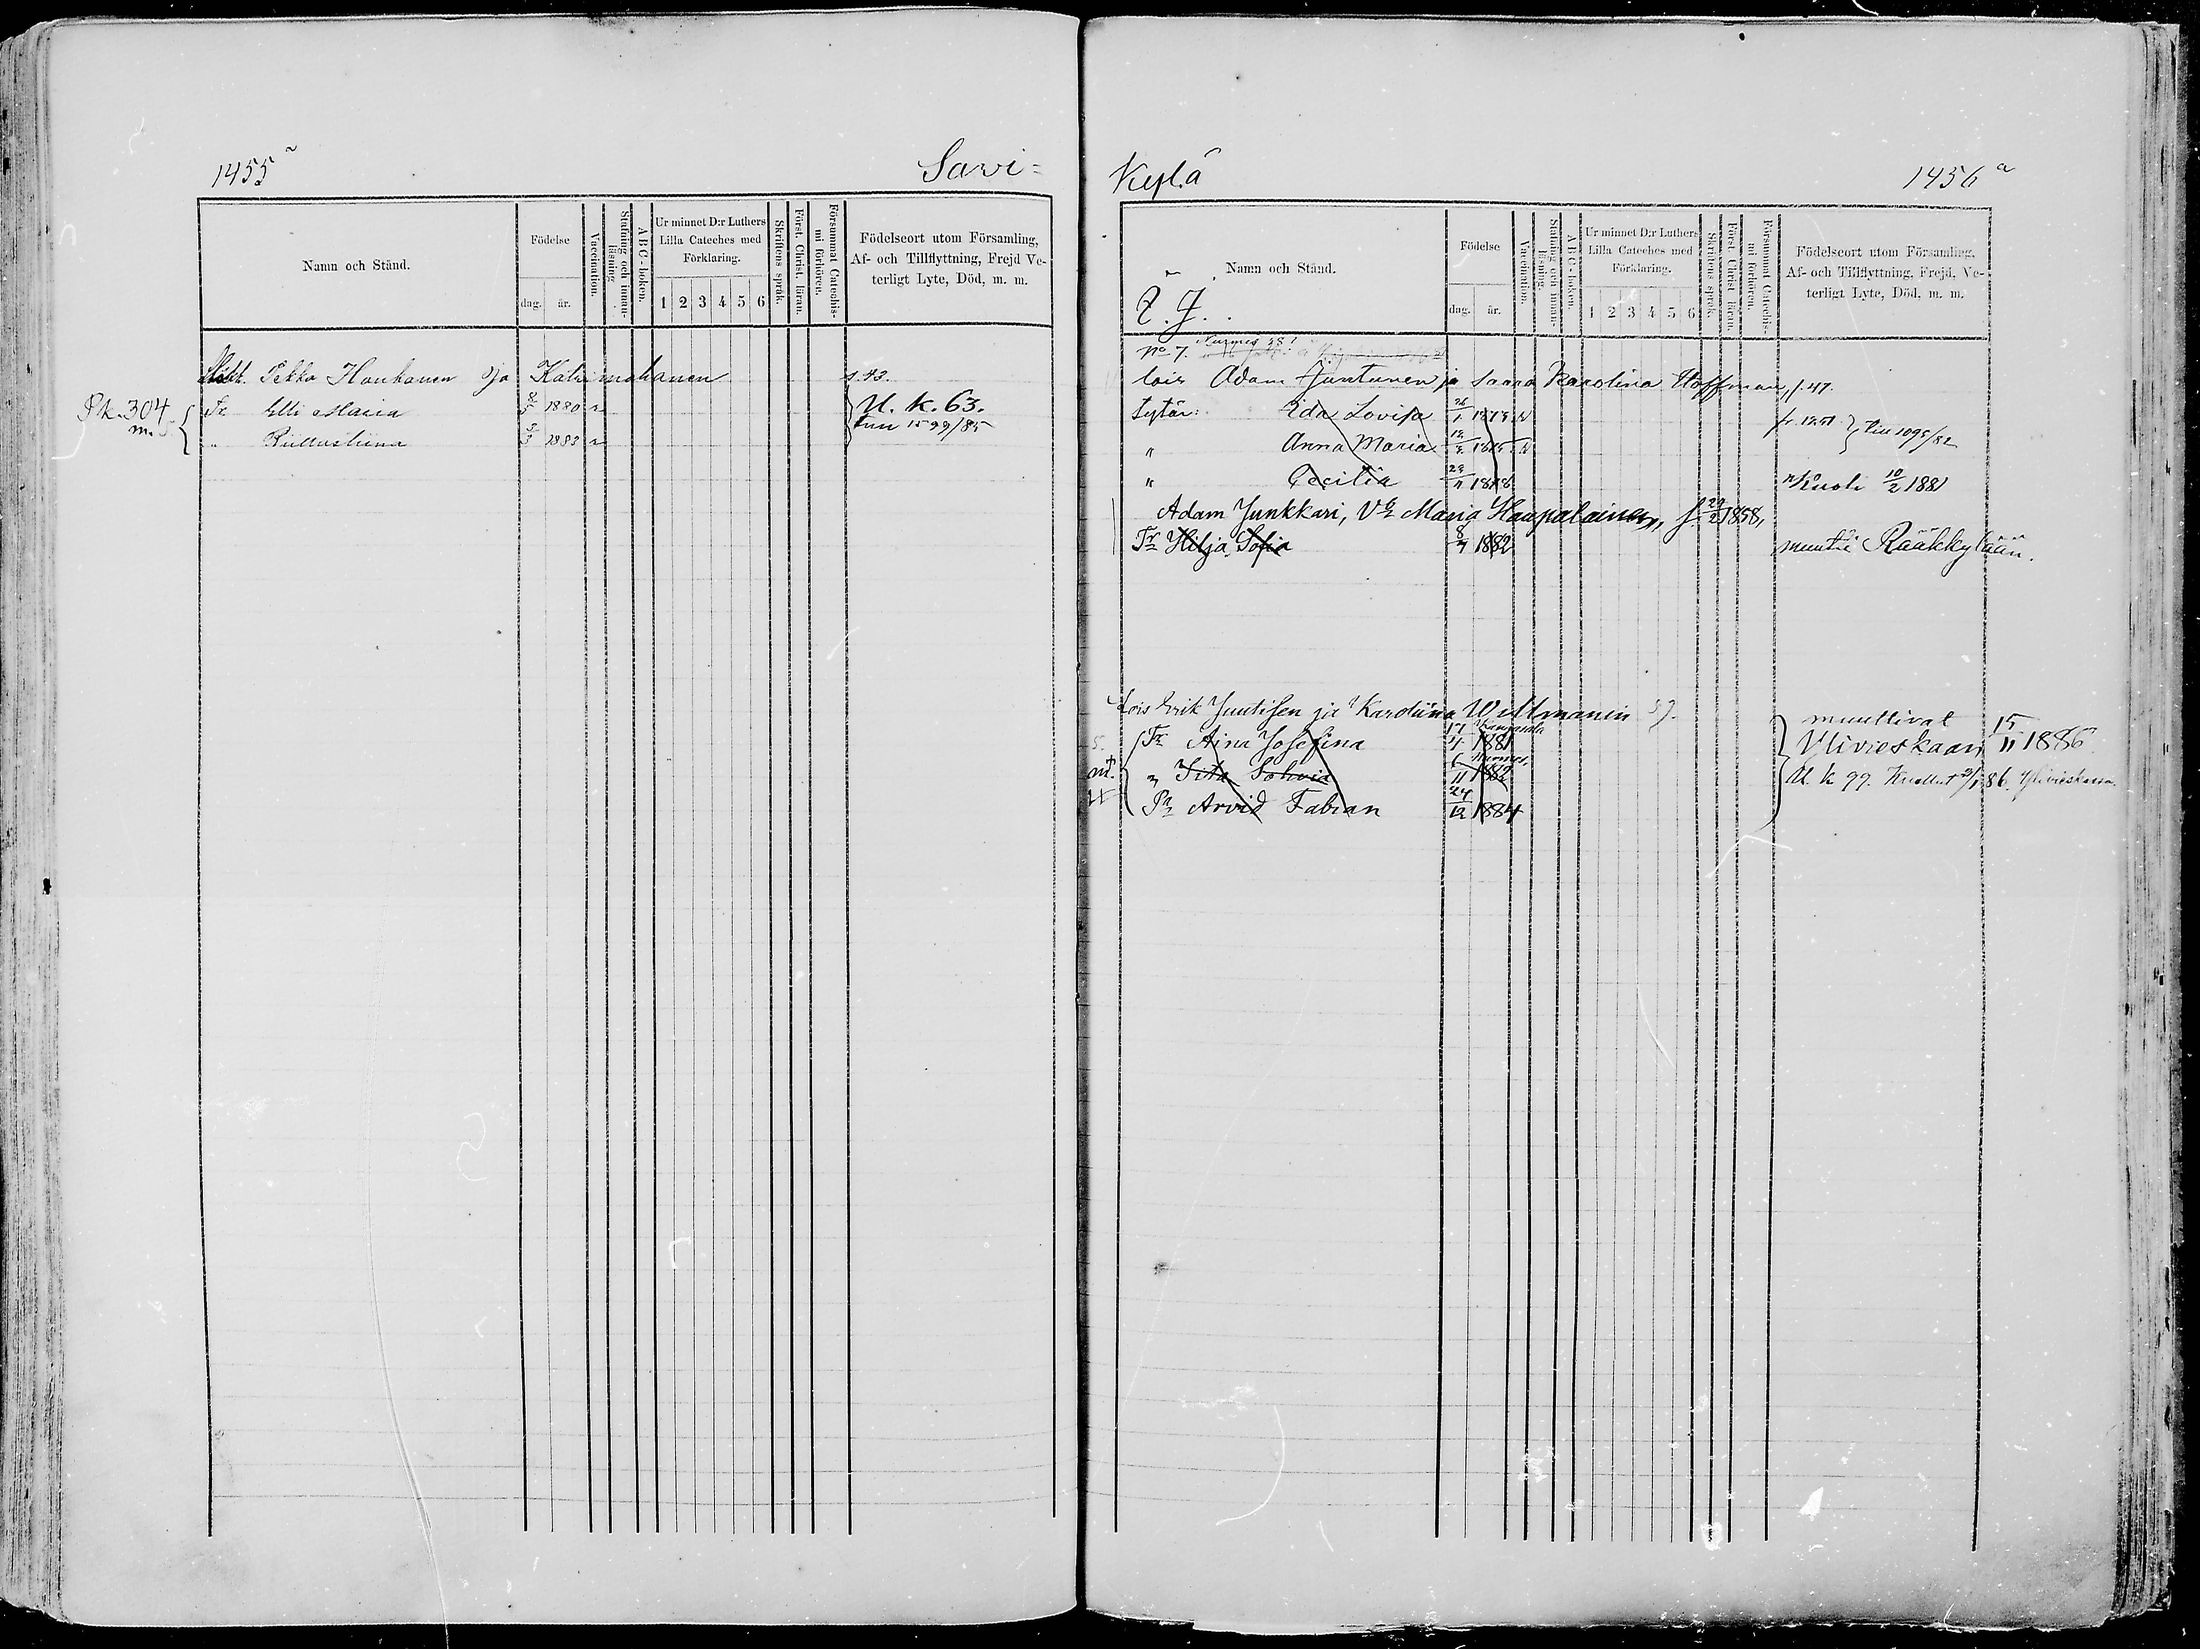 1455 a
Savi=
Namn och Stånd.
Födelse
dag. år.
Vaccination.
Stafning och innan-läsning.
A B C-boken.
Ur minnet D:r Luthers Lilla Cateches med Förklaring.
1 2 3 4 5 6
Skriftens språk.
Först. Christ. läran.
Försummat Catechis-mi förhören.
Födelseort utom Församling, Af- och Tillflyttning, Frejd Ve-terligt Lyte, Död, m. m.
Pekka Hauhanen ja Katri s. 43.
Pk. 304 Tr Elli Maria 8/5 1880 U. K. 63.
m. S. " 3/3 1883 1599/85
Kylä
1456 a
Namn och Stånd.
Födelse
dag. år.
Vaccination.
Stafning och innan-läsning.
A B C-boken.
Ur minnet D:r Luthers Lilla Cateches med Förklaring.
1 2 3 4 5 6
Skriftens språk.
Först. Christ. läran.
Försummat Catechis-mi förhören.
Födelseort utom Församling, Af- och Tillflyttning, Frejd, Ve-terligt Lyte, Död, m. m.
No 7. Nurmes
lois Adam Juntunen ja Saara Karolina Hoffman, f. 47.
tytär: Ida Lovisa
" Anna Maria 1095/82
" Cecilia 1878 Kuoli 10/2 1881
Adam Junkkari, Vo Maria Haapalainen, f. 1858,
Tr Hilja Sofia 8/4 1882 muutti Rääkkylään.
Lois Erik Juutisen ja Karoliina Willmanin
Tr Aina Josefina 1881 muuttivat 15/11 1886
" 6/11 1882 Ylivieskaan
Pa Arvid Fabian 24/12 1884 U. k 99.